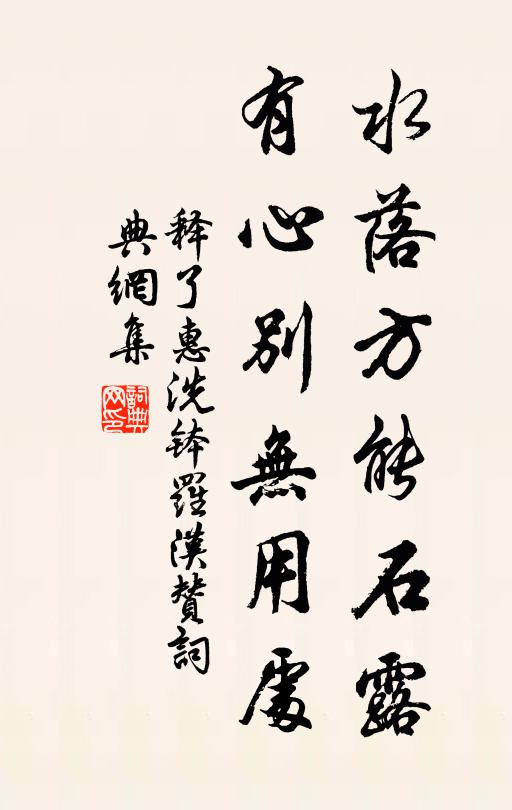 水落方能石露
有心別無用處
释了惠洗鉢羅漢贊詞
典網集
詞典
网印